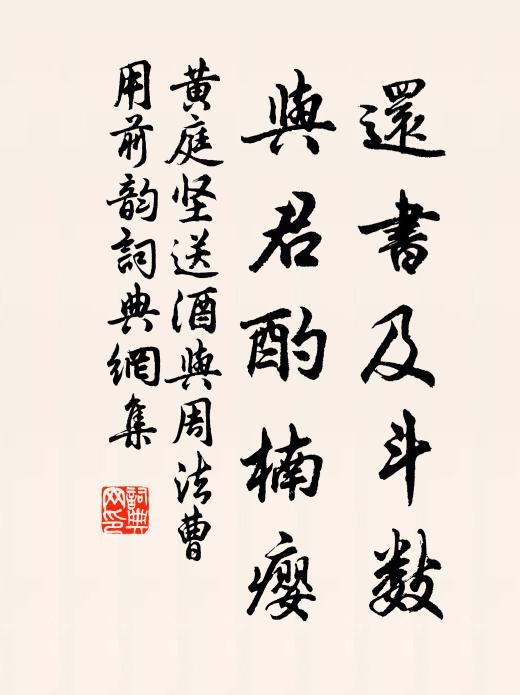 還書及斗数
與君酌楠瘿
黄庭坚送酒與周法曹
用前韵詞典網集
詞典網印